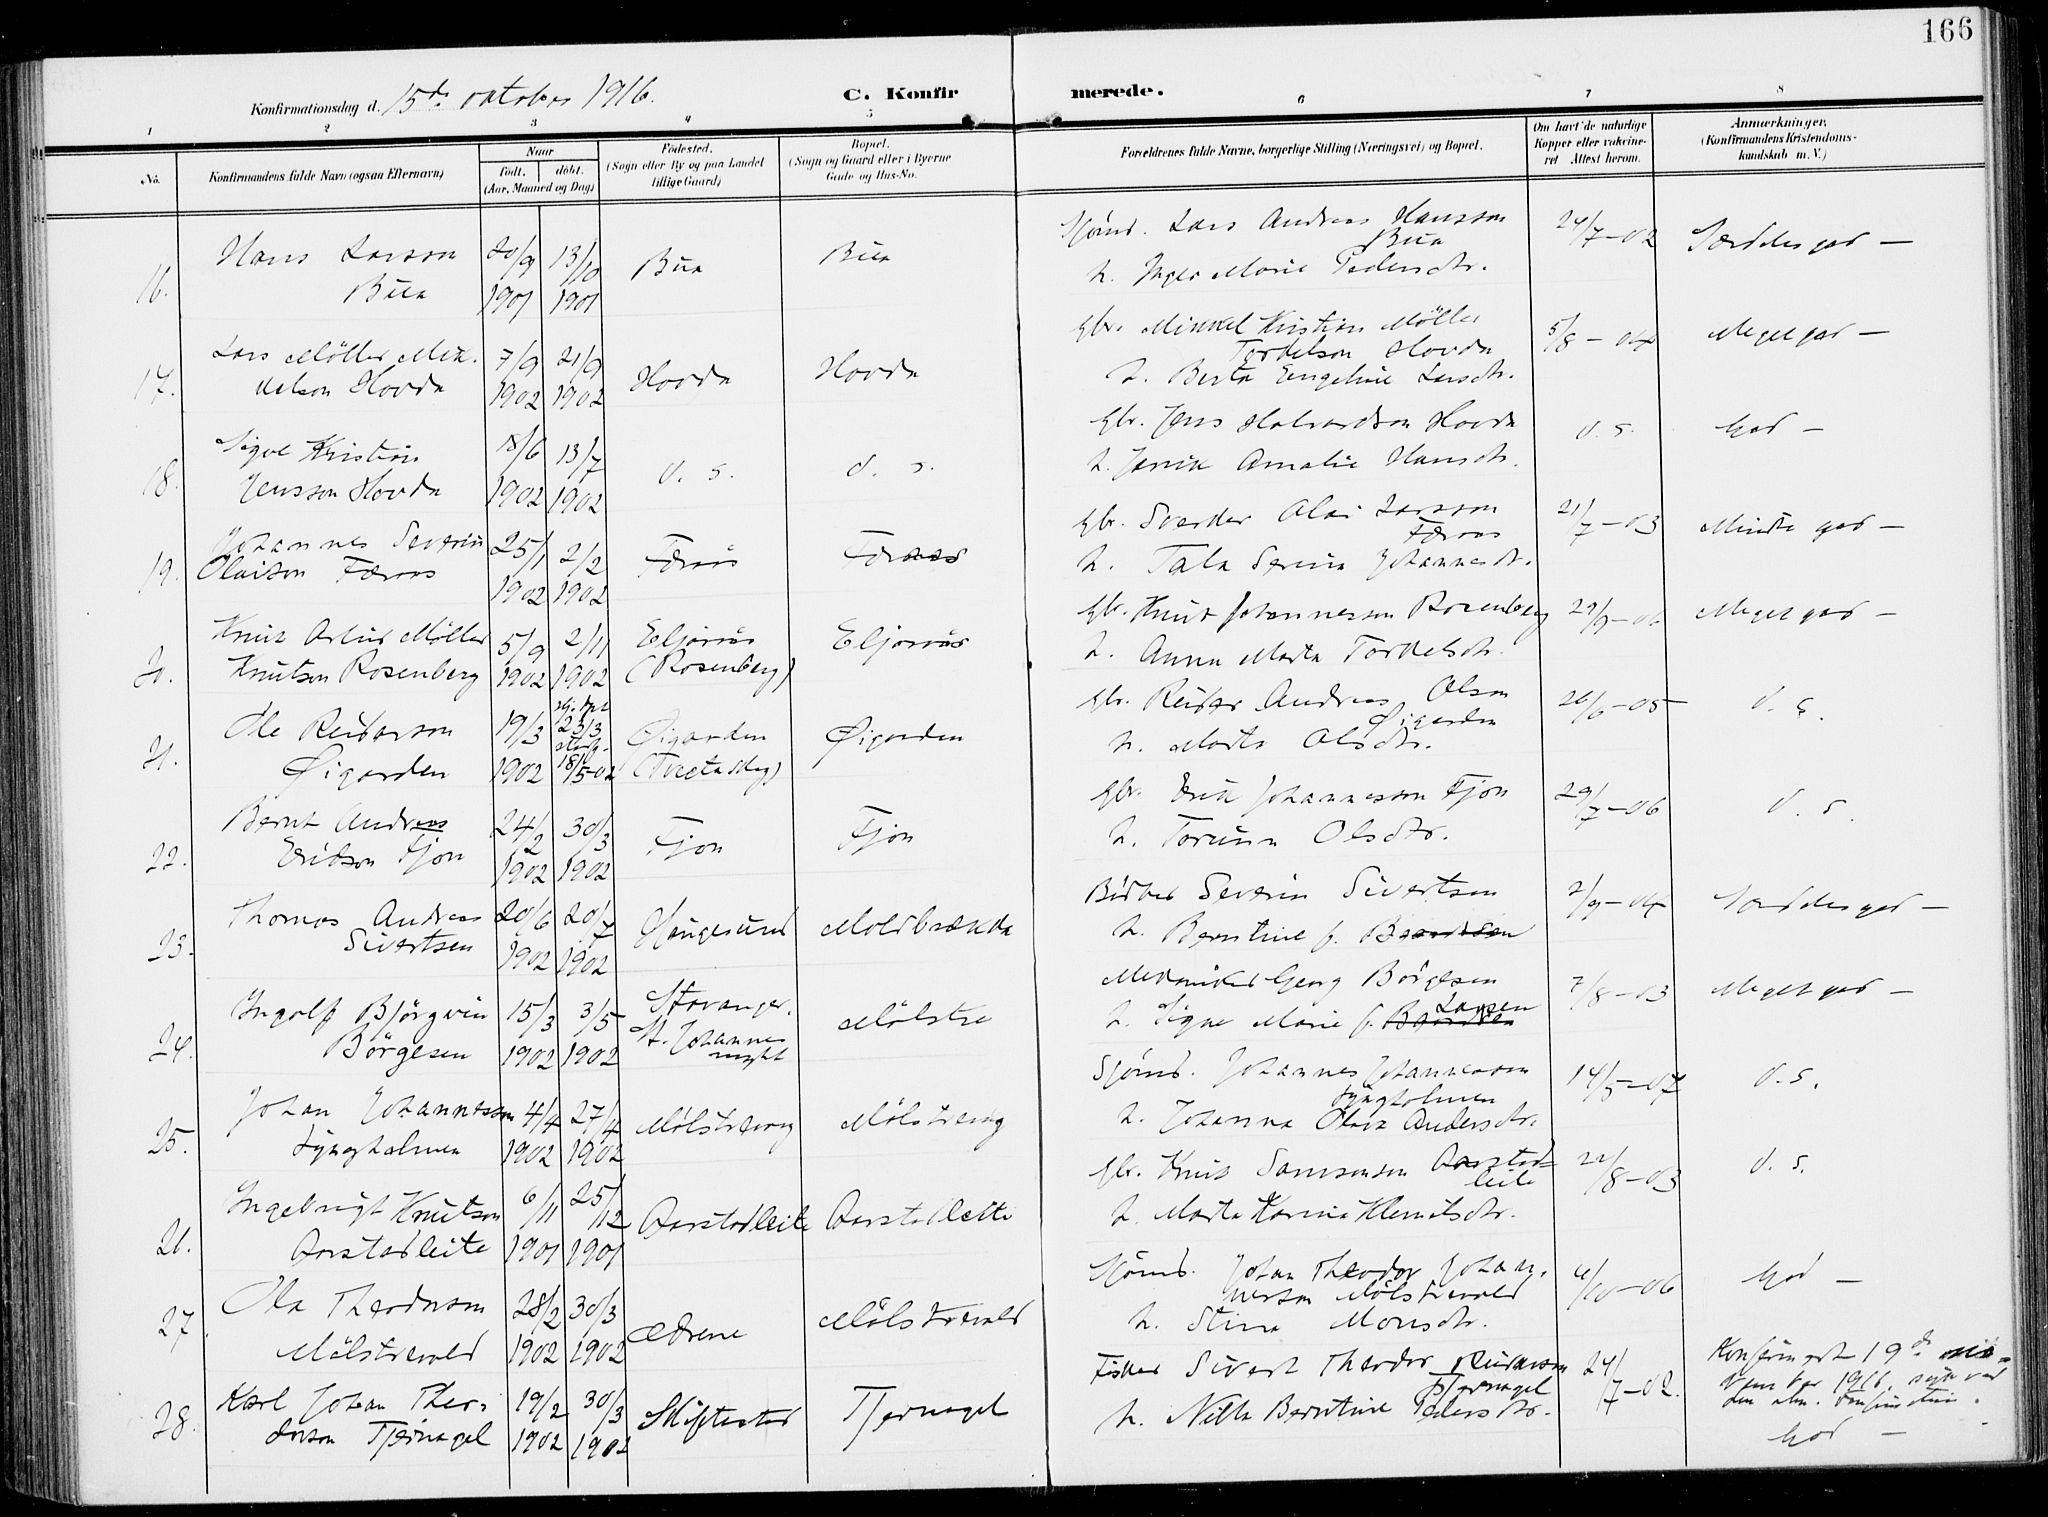 166
Konfirmationsdag d. 15de oktober 1916.
C. Konfirmerede.
1 2 3 4 5 6 7 8
No.
Konfirmandens fulde Navn (ogsaa Efternavn)
Naar
født. døbt.
(Aar, Maaned og Dag)
Fødested.
(Sogn eller By og paa Landet
tillige Gaard)
Bopæl.
(Sogn og Gaard eller i Byerne
Gade og Hus-No.
Forældrenes fulde Navne, borgerlige Stilling (Næringsvei) og Bopæl.
Om havt de naturlige
Kopper eller vakcine-
ret Attest herom.
Anmærkninger.
(Konfirmandens Kristendoms-
kundskab m. V.)
16. Hans Larson Bua 20/9 1901 13/10 1901 Bua Bua
Sjömd. Lars Andreas Hansson Bua
h. Inger Marie Pedersdtr. 24/7-02 Særdeles god –
17. Lars Möller Mik-
kelson Hovda 7/9 1902 21/9 1902 Hovda Hovda
Gbr. Mikkel Kristian Möller
Torkelson Hovda
h. Berta Engeline Larsdtr. 5/8-04 Meget god –
18. Sigve Kristian
Jensson Hovda 18/6 1902 13/7 1902 d. s. d. s.
Gbr. Jens Halvardson Hovda
h. Amalie Hansdtr. d. s. God –
19. Johannes Severin
Olaison Færaas 25/1 1902 2/2 1902 Færaas Færaas
Gbr. Olai Larsson Færaas
h. Tala Serina Johannesdtr. 21/7-03 god –
20. Knut Artur Möller
Knutson Rosenberg 5/9 1902 2/11 1902 Eljarvik
(Rosenberg) Eljarvik
Gbr. Knut Johannesson Rosenberg
h. Anna Marta Torkelsdtr. Meget god –
21. Ole Reidarson
Øigarden 19/3 1902 hj. dpt 23/3 stadf. 18/5-02 Øigarden Øigarden
Gbr. Reidar Andreas Olson
Øigarden
h. Marta Olsdtr. 26/6-05 d. s.
22. Bernt Andreas
Erikson Fjon 24/2 1902 30/3 1902 Fjon Fjon
Gbr. Erik Johannesson Fjon
h. Torunn Olsdtr. 29/7-06 d. s.
23. Thomas Andreas
Sivertsen 20/6 1902 20/7 1902 Haugesund Moldbrækka
Bödker Severin Sivertsen
h. Berntine f. 2/9-04 Særdeles god –
24. Ingolf Björgvin
Börgesen 15/3 1902 3/5 1902 Stavanger.
St. Johannes Mölstre
Mekaniker Georg Börgesen
h. Signe Marie f. Larsen 7/8-03 Meget god –
25. Johan Johannesson
Lyngholmen 4/4 1902 27/4 1902 Mölstrevaag Mölstrevaag
Sjömd. Johannes Johannesson
Lyngholmen
h. Johanna Olava Andersdtr. 14/5-07 d. s.
26. Ingebrigt Knutson
Aarstadleite 6/11 1901 25/12 1901 Aarstadleite Aarstadleite
Gbr. Knut Samsonson Aarstad-
leite
h. Marta Karina Klemetsdtr. 22/8-03 d. s.
27. Ola Theodorson
Mölstrevold 28/2 1902 30/3 1902 Mölstrevold
Sjömd. Johan Theodor Johan-
nesson Mölstrevold
h. Stina Monsdtr. 4/10-06 God –
28. Karl Johan Theo-
dorson Tjernagel 19/2 1902 30/3 1902 Skiftestad Tjernagel
Fisker Sivert Theodor Reidarson
Tjernagel
h. Nilla Berntine Pedersdtr. 24/7-02.
Konfirmert 19de
1916, syk ved
den alm. konfirmation.
God –